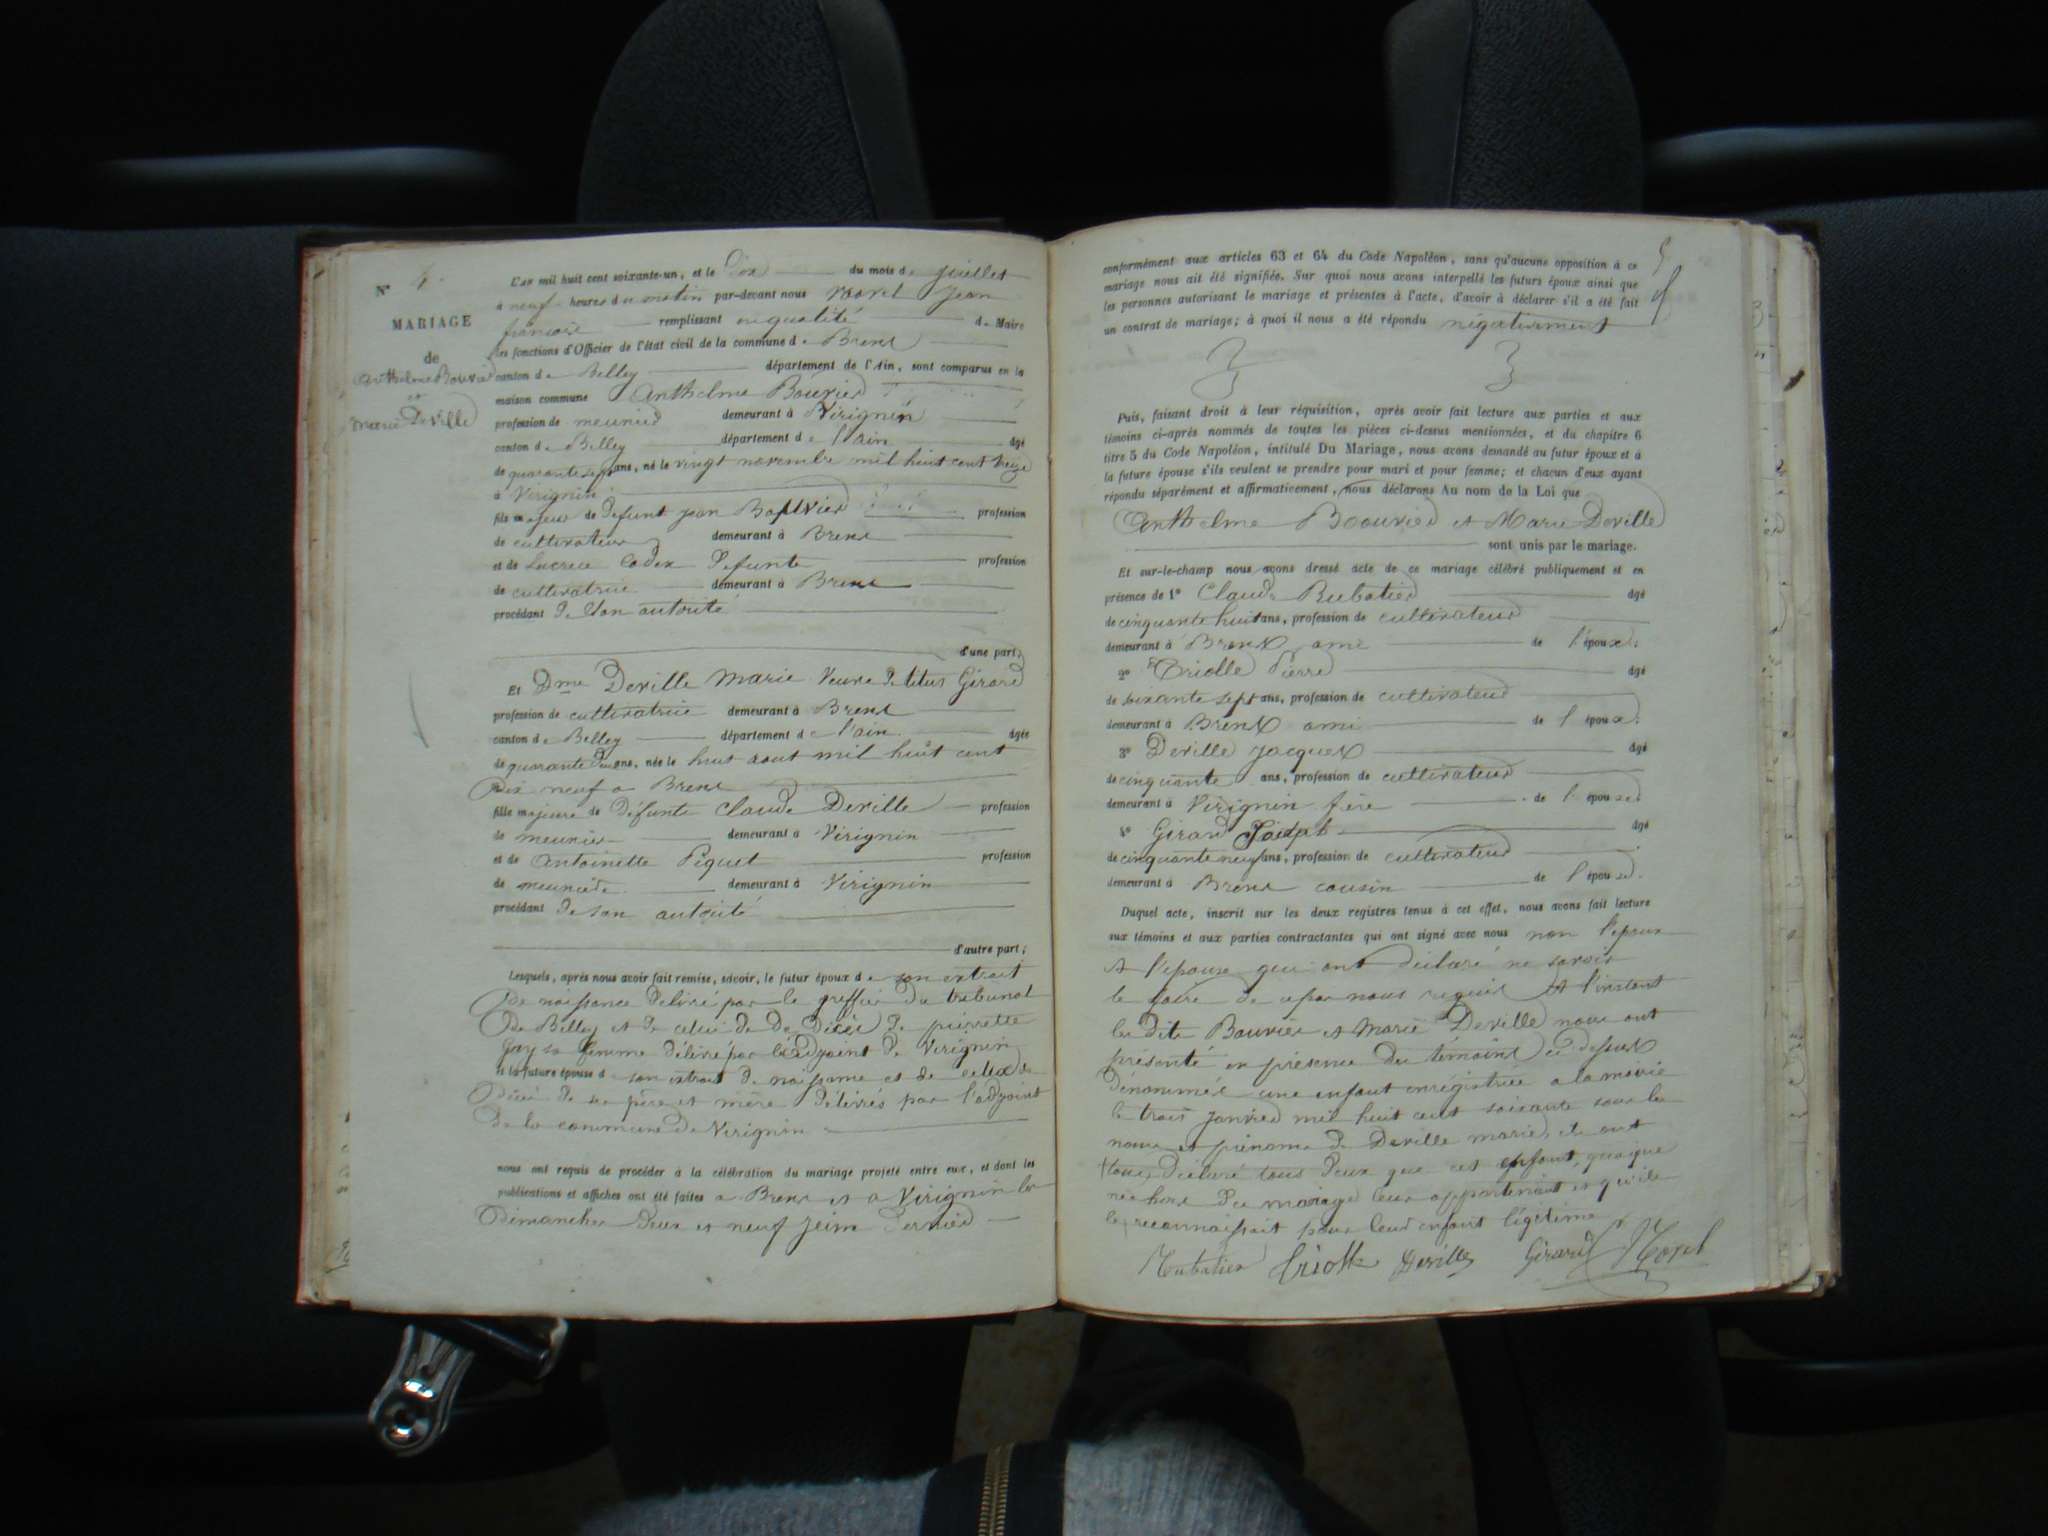 N° 4.
MARIAGE
de
Anthelme Bouvier
et
Marie Deville
L'an mil huit cent soixante-un, et le Dix du mois de Juillet
à neuf heures du matin par-devant nous Morel Jean
françois remplissant en qualité de Maire
les fonctions d'Officier de l'état civil de la commune de Brens
canton de Belley département de l'Ain, sont comparus en la
maison commune Anthelme Bouvier
profession de meunier demeurant à Virignin
canton de Belley département de l'ain âgé
de quarante sept ans, né le vingt novembre mil huit cent treize
à Virignin
fils majeur de Defunt Jean Bouvier profession
de cultivateur demeurant à Brens
et de Lucrece Codex Defunte profession
de cultivatrice demeurant à Brens
procédant De Son autorité
d'une part.
Et Dme Deville Marie Veuve De titus Girard
profession de cultivatrice demeurant à Brens
canton de Belley département de l'ain âgée
de quarante Deux ans, née le huit aout mil huit cent
Dix neuf a Brens
fille majeure de Défunt Claude Deville profession
de meunier demeurant à Virignin
et de Antoinette Piquet profession
de meunière demeurant à Virignin
procédant De son autorité
d'autre part;
Lesquels, après nous avoir fait remise, savoir, le futur époux de son extrait
De naissance Delivré par le greffier du tribunal
De Belley et De celui De De Décès De pierrette
Guy sa femme délivré par l'adjoint De Virignin
et la future épouse de son extrait De naissance et de celux de
Décès De ses père et mère Délivrés par l'adjoint
De la commune De Virignin
nous ont requis de procéder à la célébration du mariage projeté entre eux, et dont les
publications et affiches ont été faites a Brens et a Virignin les
Dimanches Deux et neuf Juin Dernier
5
conformément aux articles 63 et 64 du Code Napoléon, sans qu'aucune opposition à ce
mariage nous ait été signifiée. Sur quoi nous avons interpellé les futurs époux ainsi que
les personnes autorisant le mariage et présentes à l'acte, d'avoir à déclarer s'il a été fait
un contrat de mariage; à quoi il nous a été répondu négativement
Puis, faisant droit à leur réquisition, après avoir fait lecture aux parties et aux
témoins ci-après nommés de toutes les pièces ci-dessus mentionnées, et du chapitre 6
titre 5 du Code Napoléon, intitulé Du Mariage, nous avons demandé au futur époux et à
la future épouse s'ils veulent se prendre pour mari et pour femme; et chacun d'eux ayant
répondu séparément et affirmativement, nous déclarons Au nom de la Loi que
Anthelme Boouvier et Marie Deville
sont unis par le mariage.
Et sur-le-champ nous avons dressé acte de ce mariage célébré publiquement et en
présence de 1° Claude Rubatier âgé
de cinquante huit ans, profession de cultivateur
demeurant à Brens ami de l'époux.
2° Triolle Pierre âgé
de soixante sept ans, profession de cultivateur
demeurant à Brens ami de l'époux.
3° Deville Jacques âgé
de cinquante ans, profession de cultivateur
demeurant à Virignin frère de l'épouse.
4° Girard Joseph âgé
de cinquante neuf ans, profession de cultivateur
demeurant à Brens cousin de l'épouse.
Duquel acte, inscrit sur les deux registres tenus à cet effet, nous avons fait lecture
aux témoins et aux parties contractantes qui ont signé avec nous non l'epoux
et l'epouse qui ont déclaré ne savoir
le faire de ce par nous requis Et l'instant
les dits Bouvier et Marie Deville nous ont
présenté en présence Des témoins ci Dessus
Dénommés une enfant enregistrée a la mairie
le trois Janvier mil huit cent soixante sous les
noms et prénoms De Deville marie, ils ont
tous Déclaré tous Deux que cet enfant, quoique
née hors Du mariage leur appartenait et qu'ils
le reconnaissait pour leur enfant légitime
Rubatier Triolle Deville Girard Morel